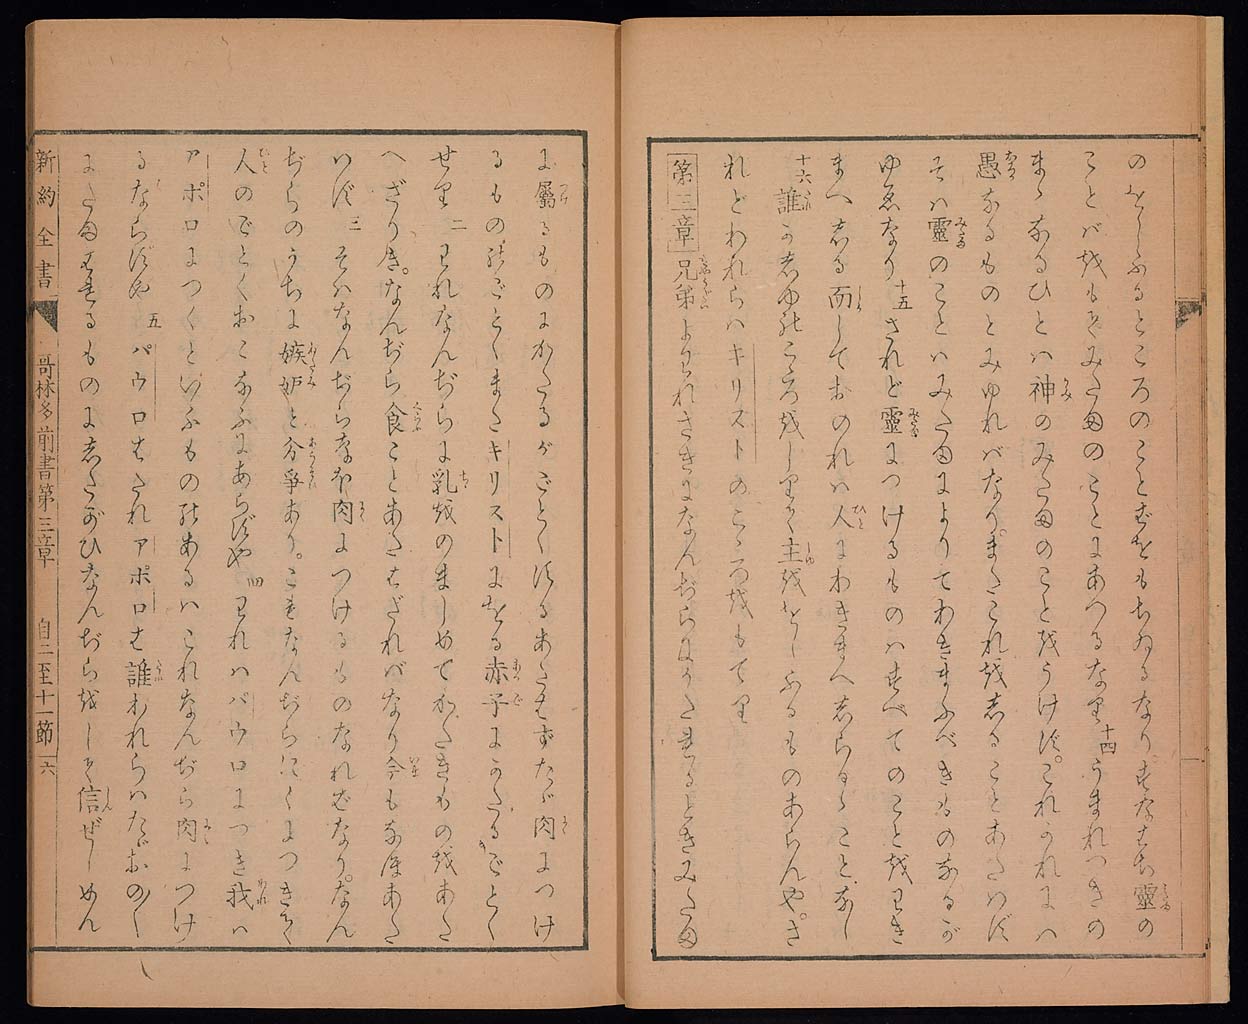 のをしふるところのことばをもちゐるなり。すなはち靈の
ことバをもてみたまのことにあつるなり十四うまれつきの
まゝなるひとハ神のみたまのことをうけず。これかれにハ
愚なるものとみゆれバなり。またこれをしることあたハず
そハ靈のことハみたまによりてわきまふべきものなるが
ゆゑなり十五されど靈につけるものハすべてのことをわき
まへしる而しておのれハ人にわきまへしらるゝことなし
十六誰か主のこゝろをしりて主ををしふるものあらんや。さ
れどわれらハキリストのこゝろをもてり
第三章 兄弟よわれさきになんぢらにかたれるときみたま
に屬るものにかたるがごとくすることあたはずたゞ肉につけ
るもののごとくまたキリストにをる赤子にかたるごとく
せり二われなんぢらに乳をのましめてかたきものをあた
へざりき。なんぢら食ことあたはざれバなり今もなほあた
ハず三そハなんぢらなほ肉につけるものなれバなり。なん
ぢらのうちに嫉妬と分爭あり。これなんぢら肉につきて
人のごとくおこなふにあらずや四われハパウロにつき我ハ
アポロにつくといふものあるハこれなんぢら肉につけ
るならずや五パウロはたれアポロは誰われらハたゞおのおの
にたまへるものにしたがひなんぢらをして信ぜしめん
新約全書 哥林多前書第三章 自二至十一節 六